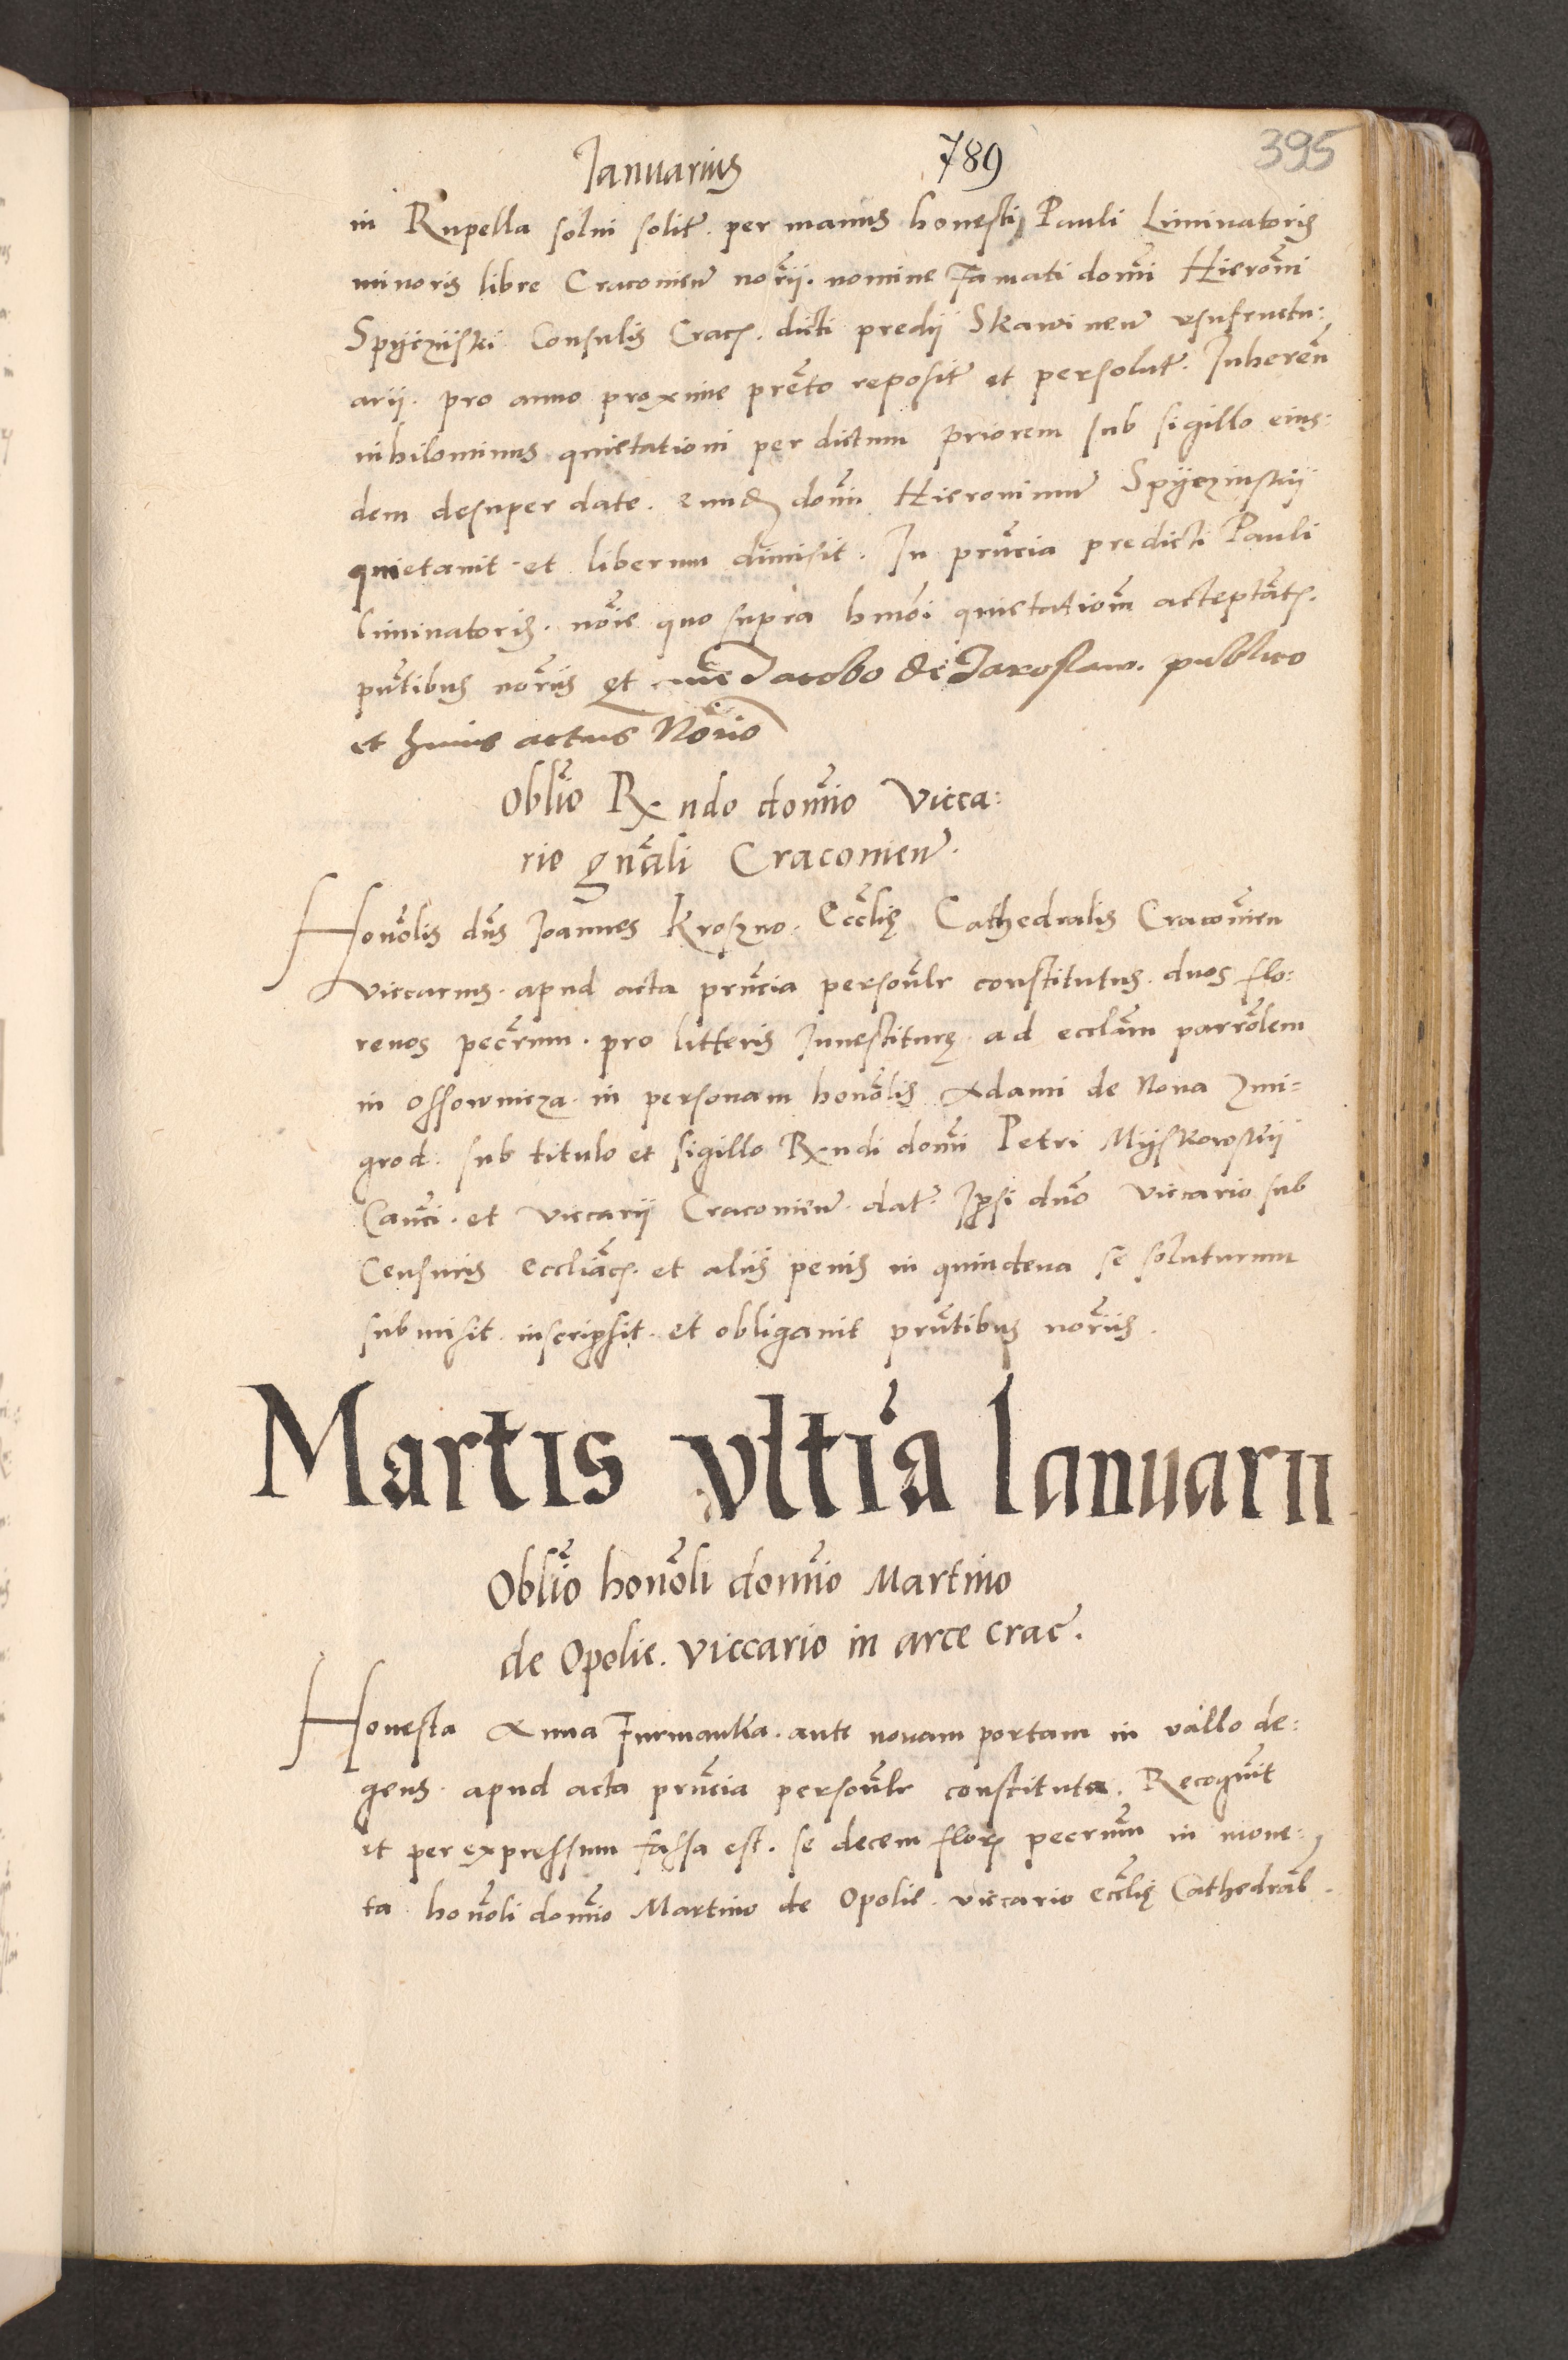 Ianuarius 789 395
in Rupella solui solit per manus honesti Pauli Liminatoris
minoris libre Cracouien norii. nomine Famati domi Hieromi
Spyczinskii Consulis Crac. dicti predii Skawinen vsufructu:
arii. pro anno proxime prento reposit et persolut. Inheren
nihilominus quietationi per dictum Priorem sub sigillo eius:
dem desuper date. eund domi Hieronimum Spyczinskii
quietauit et liberum dimisit. In prncia predicti Pauli
Liminatoris. noie quo supra hmoi quietatiom acceptatis.
pntibus noriis et me Iacobo de Iaroslaw. publico
et huius actus Norio
Oblio Rndo domio Vicca:
rio gnali Cracouien.
Honolis dns Ioannes Kroszno. Ecclię Cathedralis Cracouien
viccarius. apud acta prncia personlr constitutus. duos flo:
renos pecrum. pro litteris Inuestiturę. ad ecclam parrolem
in Ossownicza. in personam honolis Adami de Noua Zmi=
grod. sub titulo et sigillo Rndi domi Petri Myskowskii
Canci. et viccarii Cracouien. dat. Ipsi dno viccario sub
Censuris eccliac. et aliis penis in quindena se soluturum
submisit. inscripsit. et obligauit prntibus noriis.
Martis vltia Ianuarii
Oblio honoli domio Martino
de Opolie. viccario in arce crac.
Honesta Anna Furmanka. ante nouam portam in vallo de:
gens. apud acta prncia personlr constituta. Recognit
et per expressum fassa est. se decem flor pecrum in mone:
ta honoli domio Martino de Opolie. viccario ecclię Cathedral.